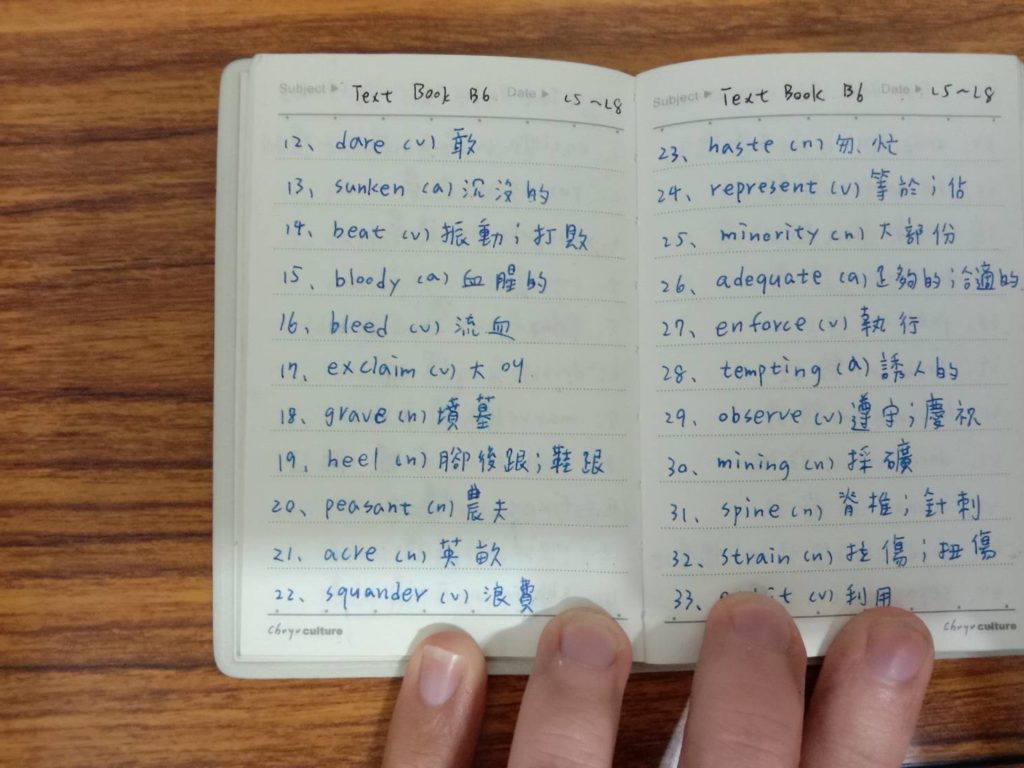 Subject ▶ Text Book B6 Date ▶ L5~L8
12、dare (v) 敢
13、sunken (a) 沉沒的
14、beat (v) 振動；打敗
15、bloody (a) 血腥的
16、bleed (v) 流血
17、exclaim (v) 大叫
18、grave (n) 墳墓
19、heel (n) 腳後跟；鞋跟
20、peasant (n) 農夫
21、acre (n) 英畝
22、squander (v) 浪費
culture
Subject ▶ Text Book B6 Date ▶ L5~L8
23、haste (n) 匆忙
24、represent (v) 等於；佔
25、minority (n) 大部份
26、adequate (a) 足夠的；洽適的
27、enforce (v) 執行
28、tempting (a) 誘人的
29、observe (v) 遵守；慶祝
30、mining (n) 採礦
31、spine (n) 脊椎；針刺
32、strain (n) 拉傷；扭傷
33、(v) 利用
culture